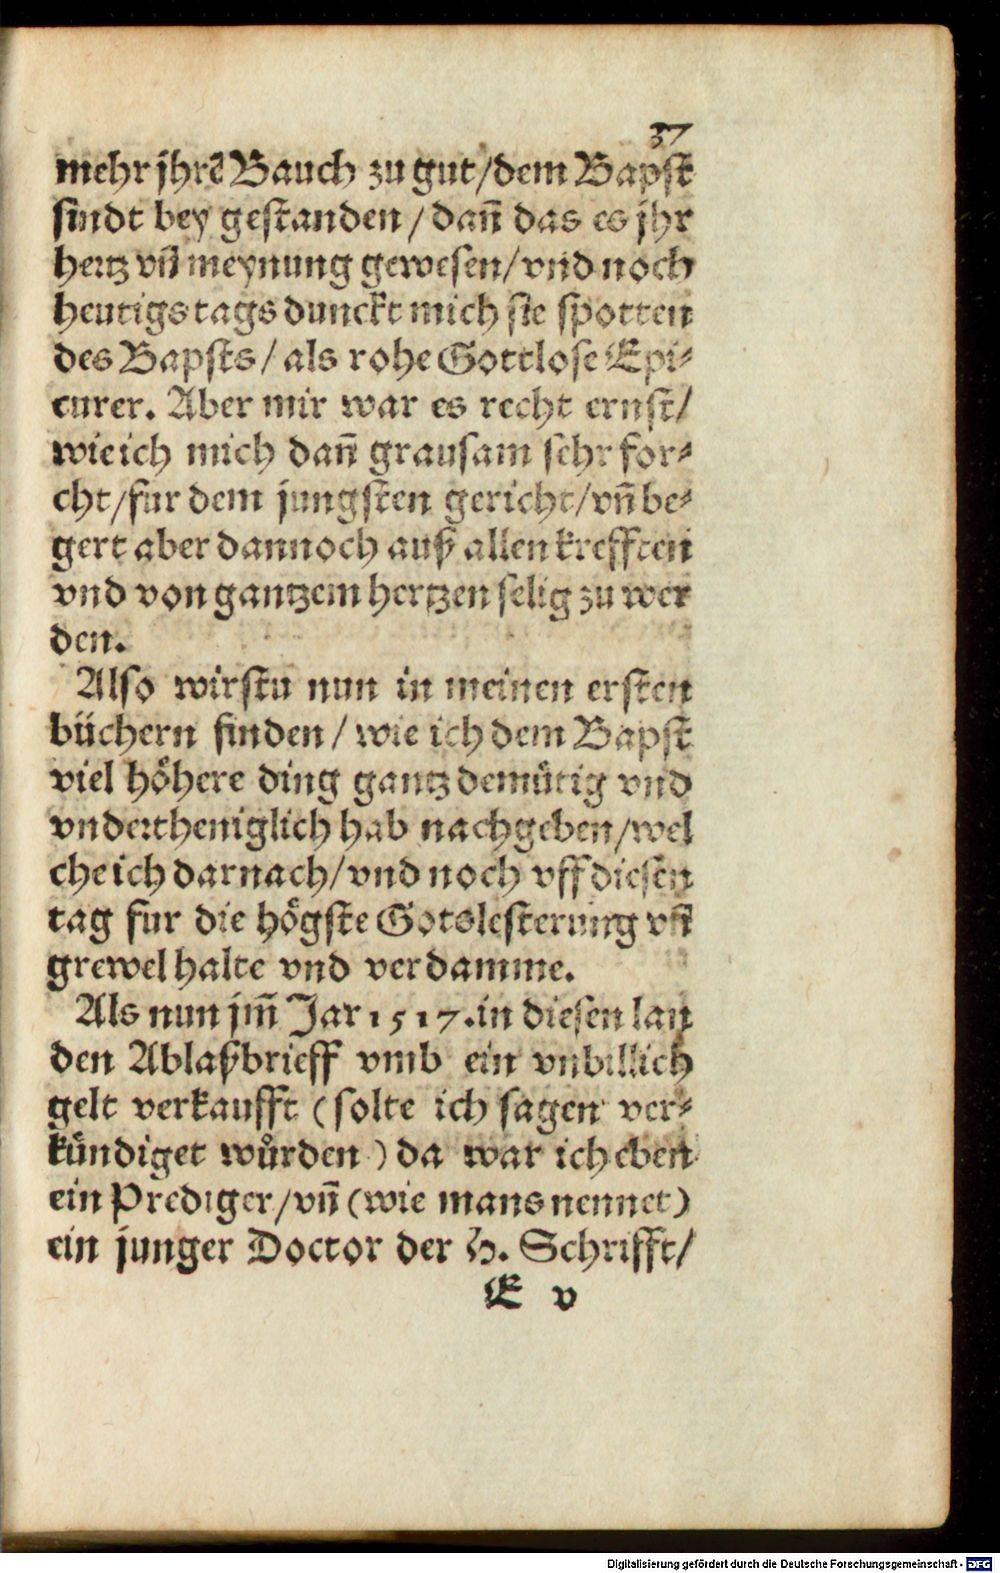 37
mehr jhrē Bauch zu gut/dem Bapst
sindt bey gestanden / dañ das es jhr
hertz vñ meynung gewesen/vnd noch
heutigs tags dunckt mich sie spotten
des Bapsts/ als rohe Gottlose Epi⸗
curer. Aber mir war es recht ernst/
wie ich mich dañ grausam sehr for⸗
cht/fur dem jungsten gericht/vñ be⸗
gert aber dannoch auß allen krefften
vnd von gantzem hertzen selig zu wer
den.
Also wirstu nun in meinen ersten
büchern finden/ wie ich dem Bapst
viel höhere ding gantz demütig vnd
vndertheniglich hab nachgeben/wel
che ich darnach/vnd noch vff diesen
tag fur die högste Gotslesterung vñ
grewel halte vnd verdamme.
Als nun jm̃ Jar 1517. in diesen lan
den Ablaßbrieff vmb ein vnbillich
gelt verkaufft (solte ich sagen ver⸗
kündiget wůrden) da war ich eben
ein Prediger/vñ (wie mans nennet)
ein junger Doctor der H. Schrifft/
E v
Digitalisierung gefördert durch die Deutsche Forschungsgemeinschaft - DFG